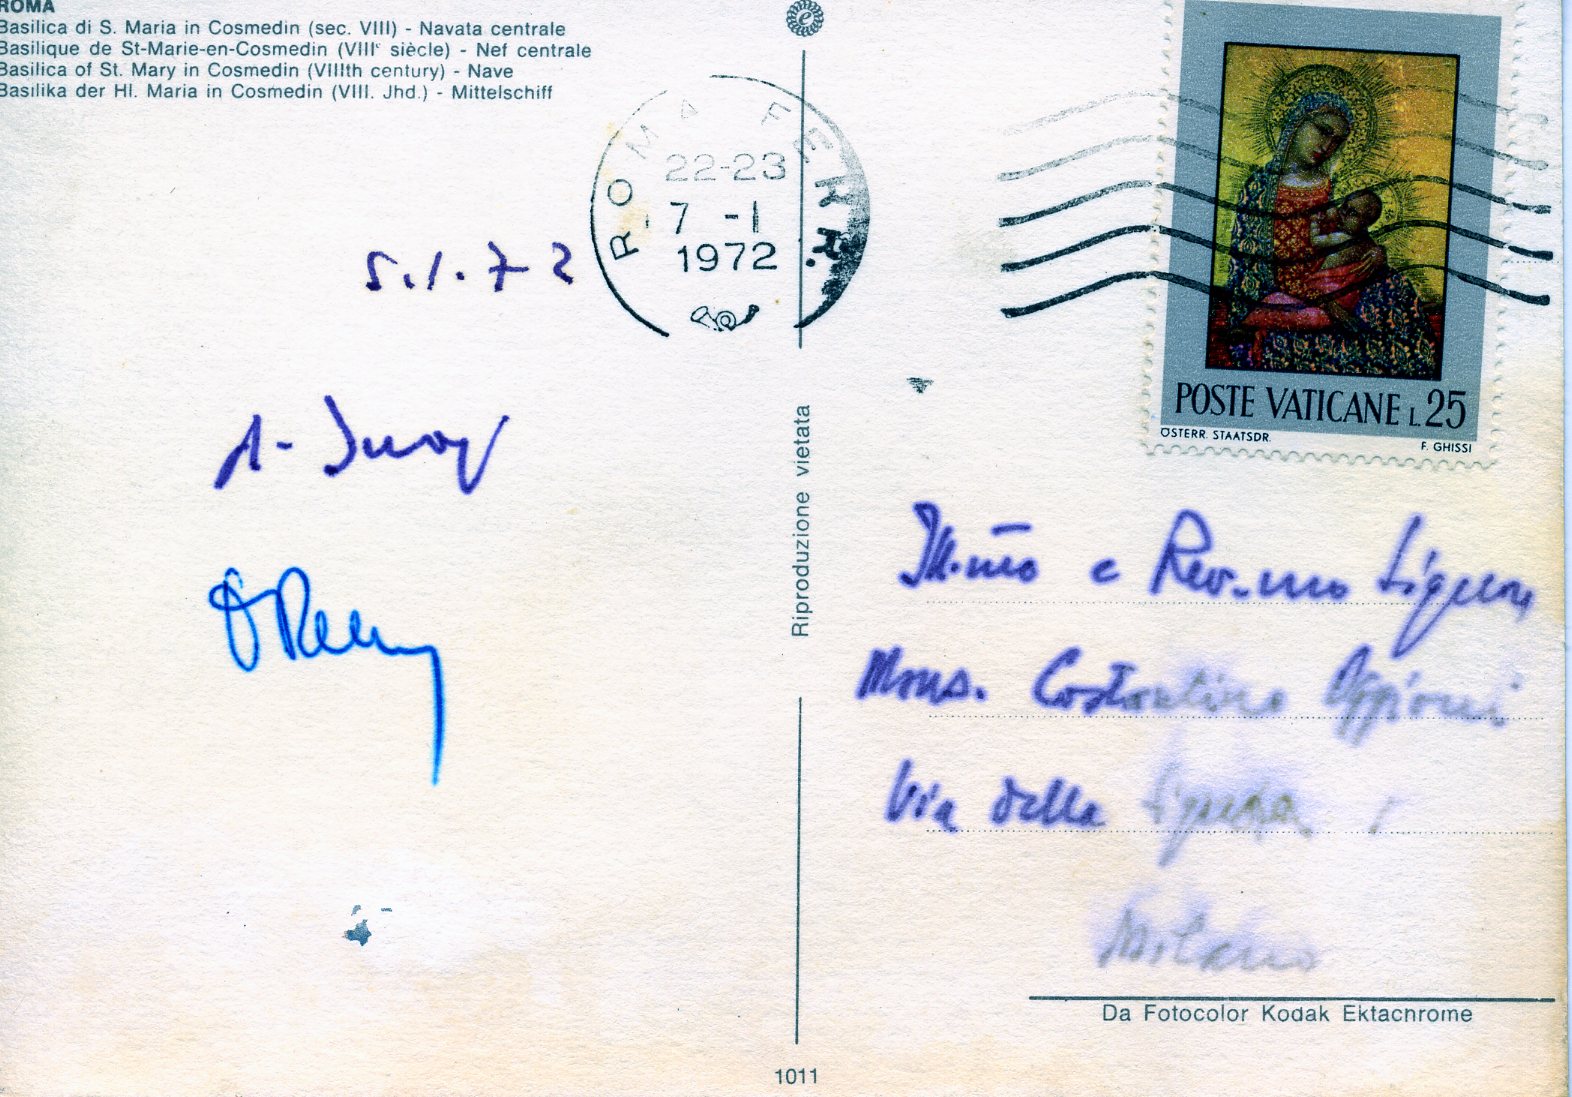 ROMA
Basilica di S. Maria in Cosmedin (sec. VIII) - Navata centrale
Basilique de St-Marie-en-Cosmedin (VIIIe siècle) - Nef centrale
Basilica of St. Mary in Cosmedin (VIIIth century) - Nave
Basilika der Hl. Maria in Cosmedin (VIII. Jhd.) - Mittelschiff
ROMA FERR.
22-23
7 -1
1972
5.1.72
POSTE VATICANE L.25
ÖSTERR. STAATSDR. F. GHISSI
Riproduzione vietata
Ill.mo e Rev.mo Signore
Mons. Costantino Oggioni
Via della Signora 1
Milano
Da Fotocolor Kodak Ektachrome
1011